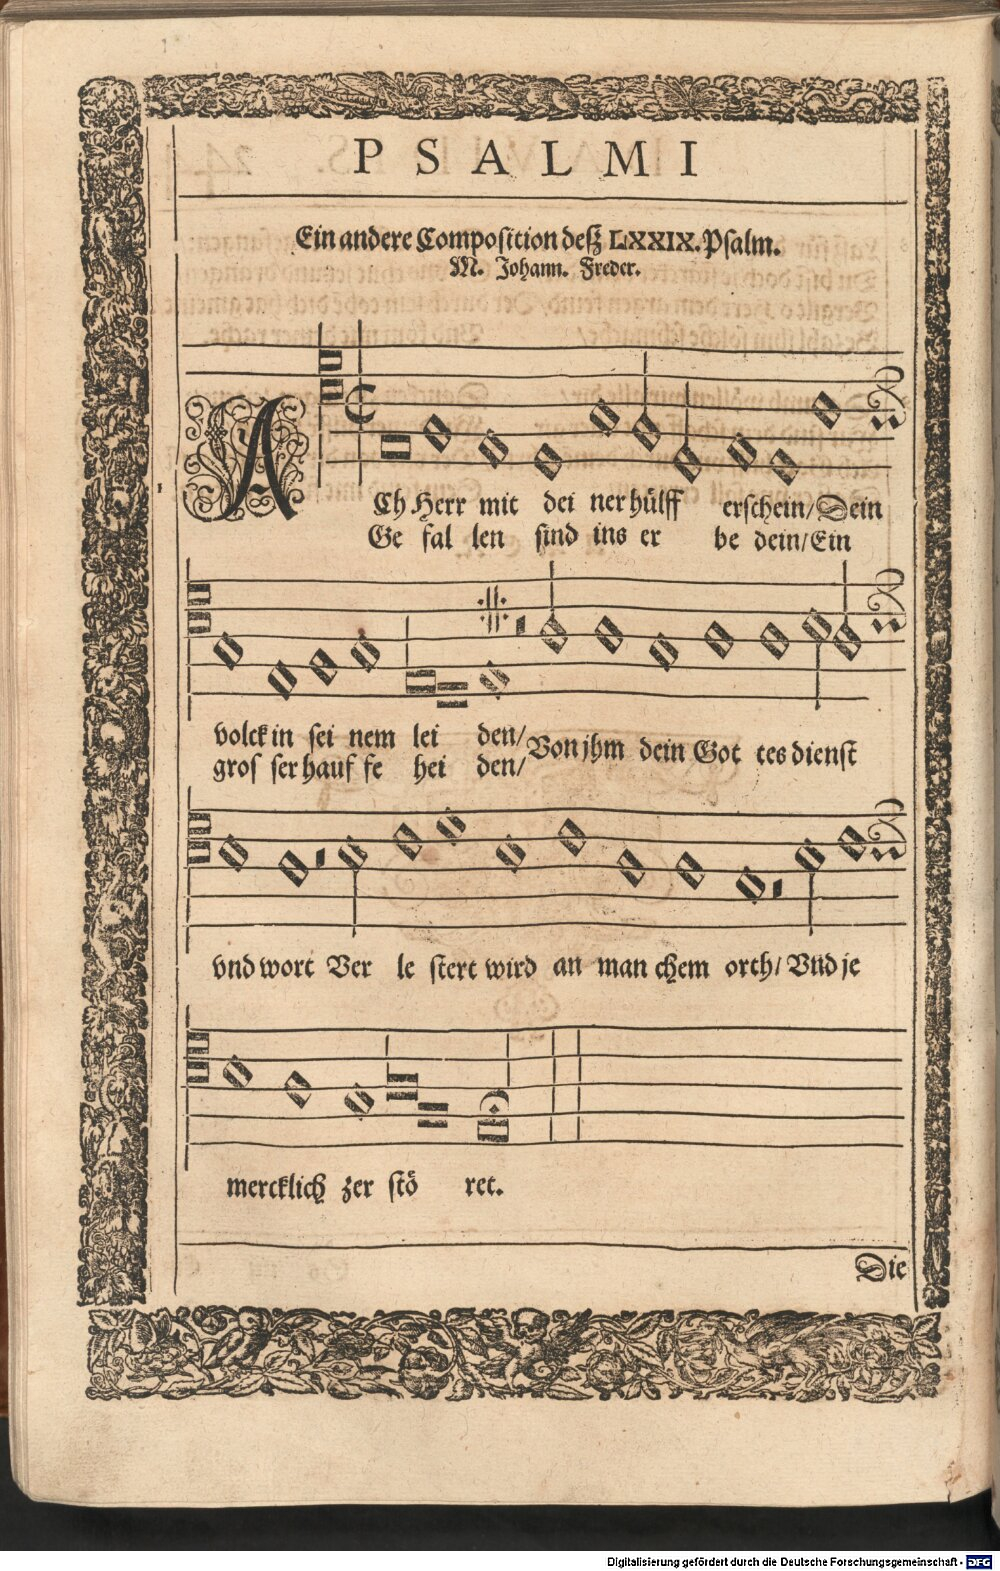 PSALMI
Ein andere Composition deß LXXIX. Psalm.
M. Johann. Freder.
ACh Herr mit dei ner hülff erschein/ Dein
Ge fal len sind ins er be dein/ Ein
volck in sei nem lei den/
gros ser hauf fe hei den/
Von jhm dein Got tes dienst
vnd wort Ver le stert wird an man chem orth/ Vnd je
mercklich zer stö ret.
Die
Digitalisierung gefördert durch die Deutsche Forschungsgemeinschaft - DFG